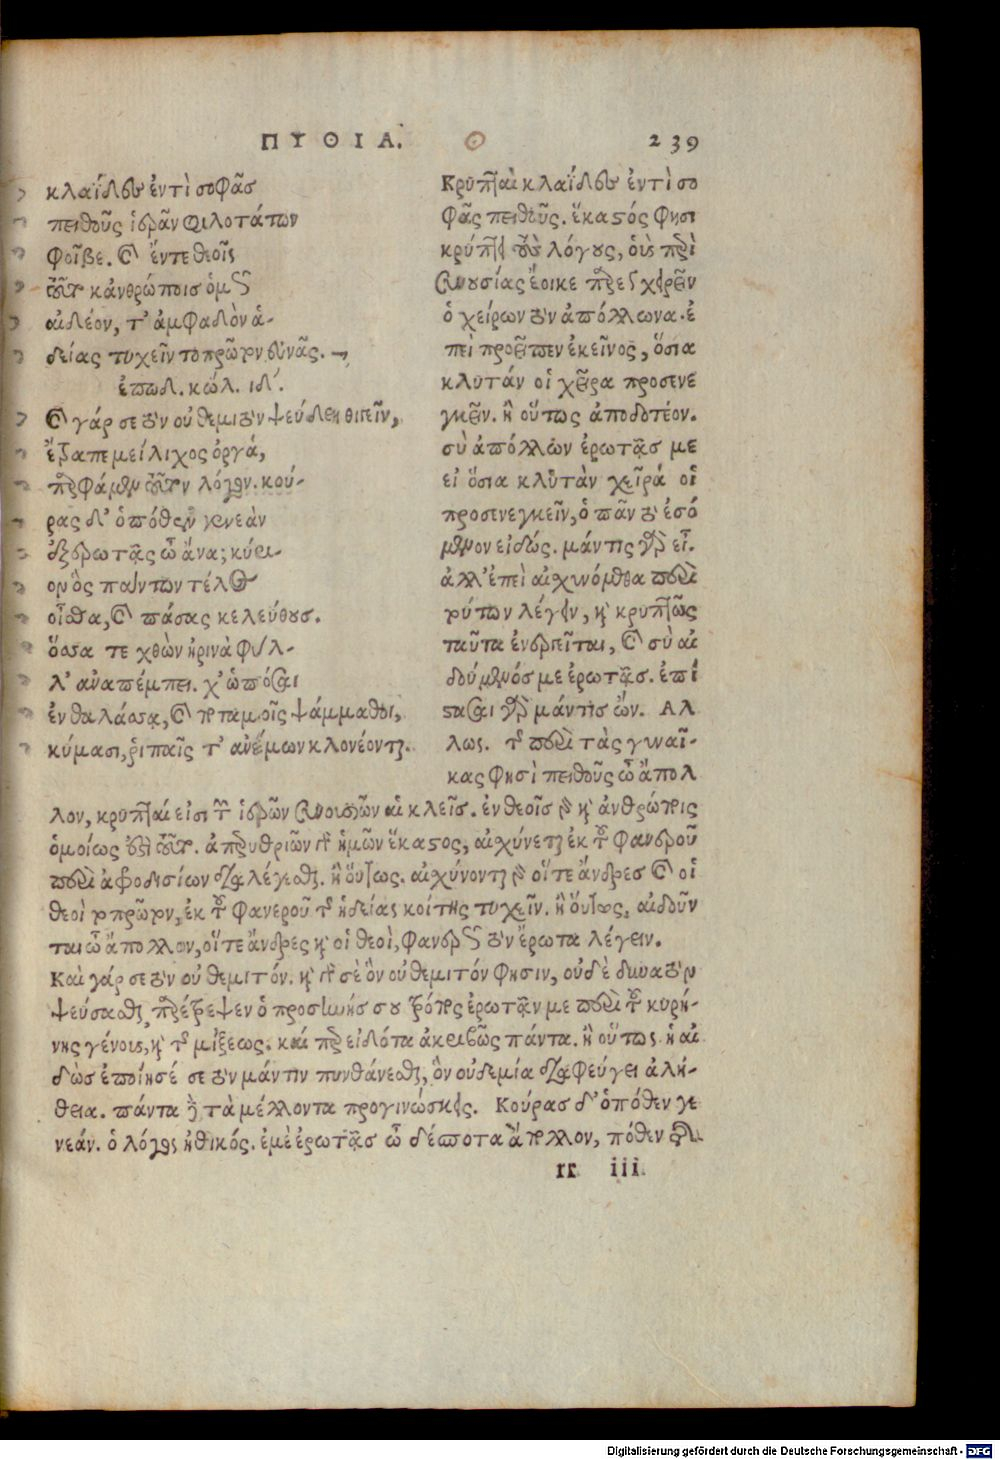 ΠΥΘΙΑ. Θ 239
κλαΐδες ἐντὶ σοφᾶς
πειθοῦς ἱερᾶν φιλοτάτων
φοῖβε. καὶ ἔντε θεοῖς
τοῦτο κἀνθρώποις ὁμῶς
αἰδέον, τ' ἀμφαδὸν ἁ-
δείας τυχεῖν τοπρῶτον εὐνᾶς.
ἐπωδ. κώλ. ιδ'.
καὶ γάρ σε τὸν οὐ θεμιτὸν ψεύδει θιγεῖν,
ἔτραπε μείλιχος ὀργά,
παρφάμεν τοῦτον λόγον. κού-
ρας δ' ὁπόθεν γενεὰν
ἐξερωτᾷς ὦ ἄνα; κύρι-
ον ὃς πάντων τέλος
οἶσθα, καὶ πάσας κελεύθους.
ὅσσα τε χθὼν ἠρινὰ φύλ-
λ' ἀναπέμπει. χ' ὡπόσαι
ἐν θαλάσσᾳ, καὶ ποταμοῖς ψάμμαθοι,
κύμασι, ῥιπαῖς τ' ἀνέμων κλονέονται.
Κρυπταὶ κλαΐδες ἐντὶ σο
φᾶς πειθοῦς. ἕκαστός φησι
κρύπτει τοὺς λόγους, οὓς περὶ
συνουσίας ἔοικε πρὸς χείρωνα
ὁ χείρων τὸν ἀπόλλωνα. ἐ
πεὶ προεῖπεν ἐκεῖνος, ὅσια
κλυτάν οἱ χέρα προσενε
γκεῖν. ἢ οὕτως ἀποδοτέον.
σὺ ἀπόλλων ἐρωτᾷς με
εἰ ὅσια κλυτὰν χεῖρά οἱ
προσενεγκεῖν, ὁ πᾶν τὸ ἐσό
μενον εἰδώς. μάντις γὰρ εἶ.
ἀλλ' ἐπεὶ αἰχυνόμεθα περὶ
τούτων λέγειν, καὶ κρυπτῶς
ταῦτα ἐνεργεῖται, καὶ σὺ αἰ
δούμενός με ἐρωτᾷς. ἐπί
στασαι γὰρ μάντις ὤν. Αλ
λως. τὸ περὶ τὰς γυναῖ-
κας φησὶ πειθοῦς ὦ ἄπολ
λον, κρυπταί εἰσι τῶν ἱερῶν συνουσιῶν αἱ κλεῖς. ἐν θεοῖς δὲ καὶ ἀνθρώποις
ὁμοίως ἐστὶ τοῦτο. ἀπερυθριῶν γὰρ ἡμῶν ἕκαστος, αἰχύνεται ἐκ τοῦ φανεροῦ
περὶ ἀφοδισίων διαλέγεσθαι. ἢ οὕτως. αἰχύνονται δὲ οἵ τε ἄνδρες καὶ οἱ
θεοὶ τοπρῶτον, ἐκ τοῦ φανεροῦ τῆς ἡδείας κοίτης τυχεῖν. ἢ οὕτως, αἰδοῦν
ται ὦ ἄπολλον, οἵ τε ἄνδρες καὶ οἱ θεοὶ, φανερῶς τὸν ἔρωτα λέγειν.
Καὶ γάρ σε τὸν οὐ θεμιτόν. καὶ γὰρ σὲ ὃν οὐ θεμιτόν φησιν, οὐδὲ δυνατὸν
ψεύσασθαι, παρέτρεψεν ὁ προσηνής σου τρόπος ἐρωτᾷν με περὶ τοῦ κυρή-
νης γένους, καὶ τῆς μίξεως. καί περ εἰδότα ἀκριβῶς πάντα. ἢ οὕτως. ἡ αἰ
δὼς ἐποίησέ σε τὸν μάντιν πυνθάνεσθαι, ὃν οὐδεμία διαφεύγει ἀλή-
θεια. πάντα γὰρ τὰ μέλλοντα προγινώσκεις. Κούρας δ' ὁπόθεν γε
νεάν. ὁ λόγος ἠθικός. ἐμὲ ἐρωτᾷς ὦ δέσποτα ἄπολλον, πόθεν
rr iii.
Digitalisierung gefördert durch die Deutsche Forschungsgemeinschaft - DFG